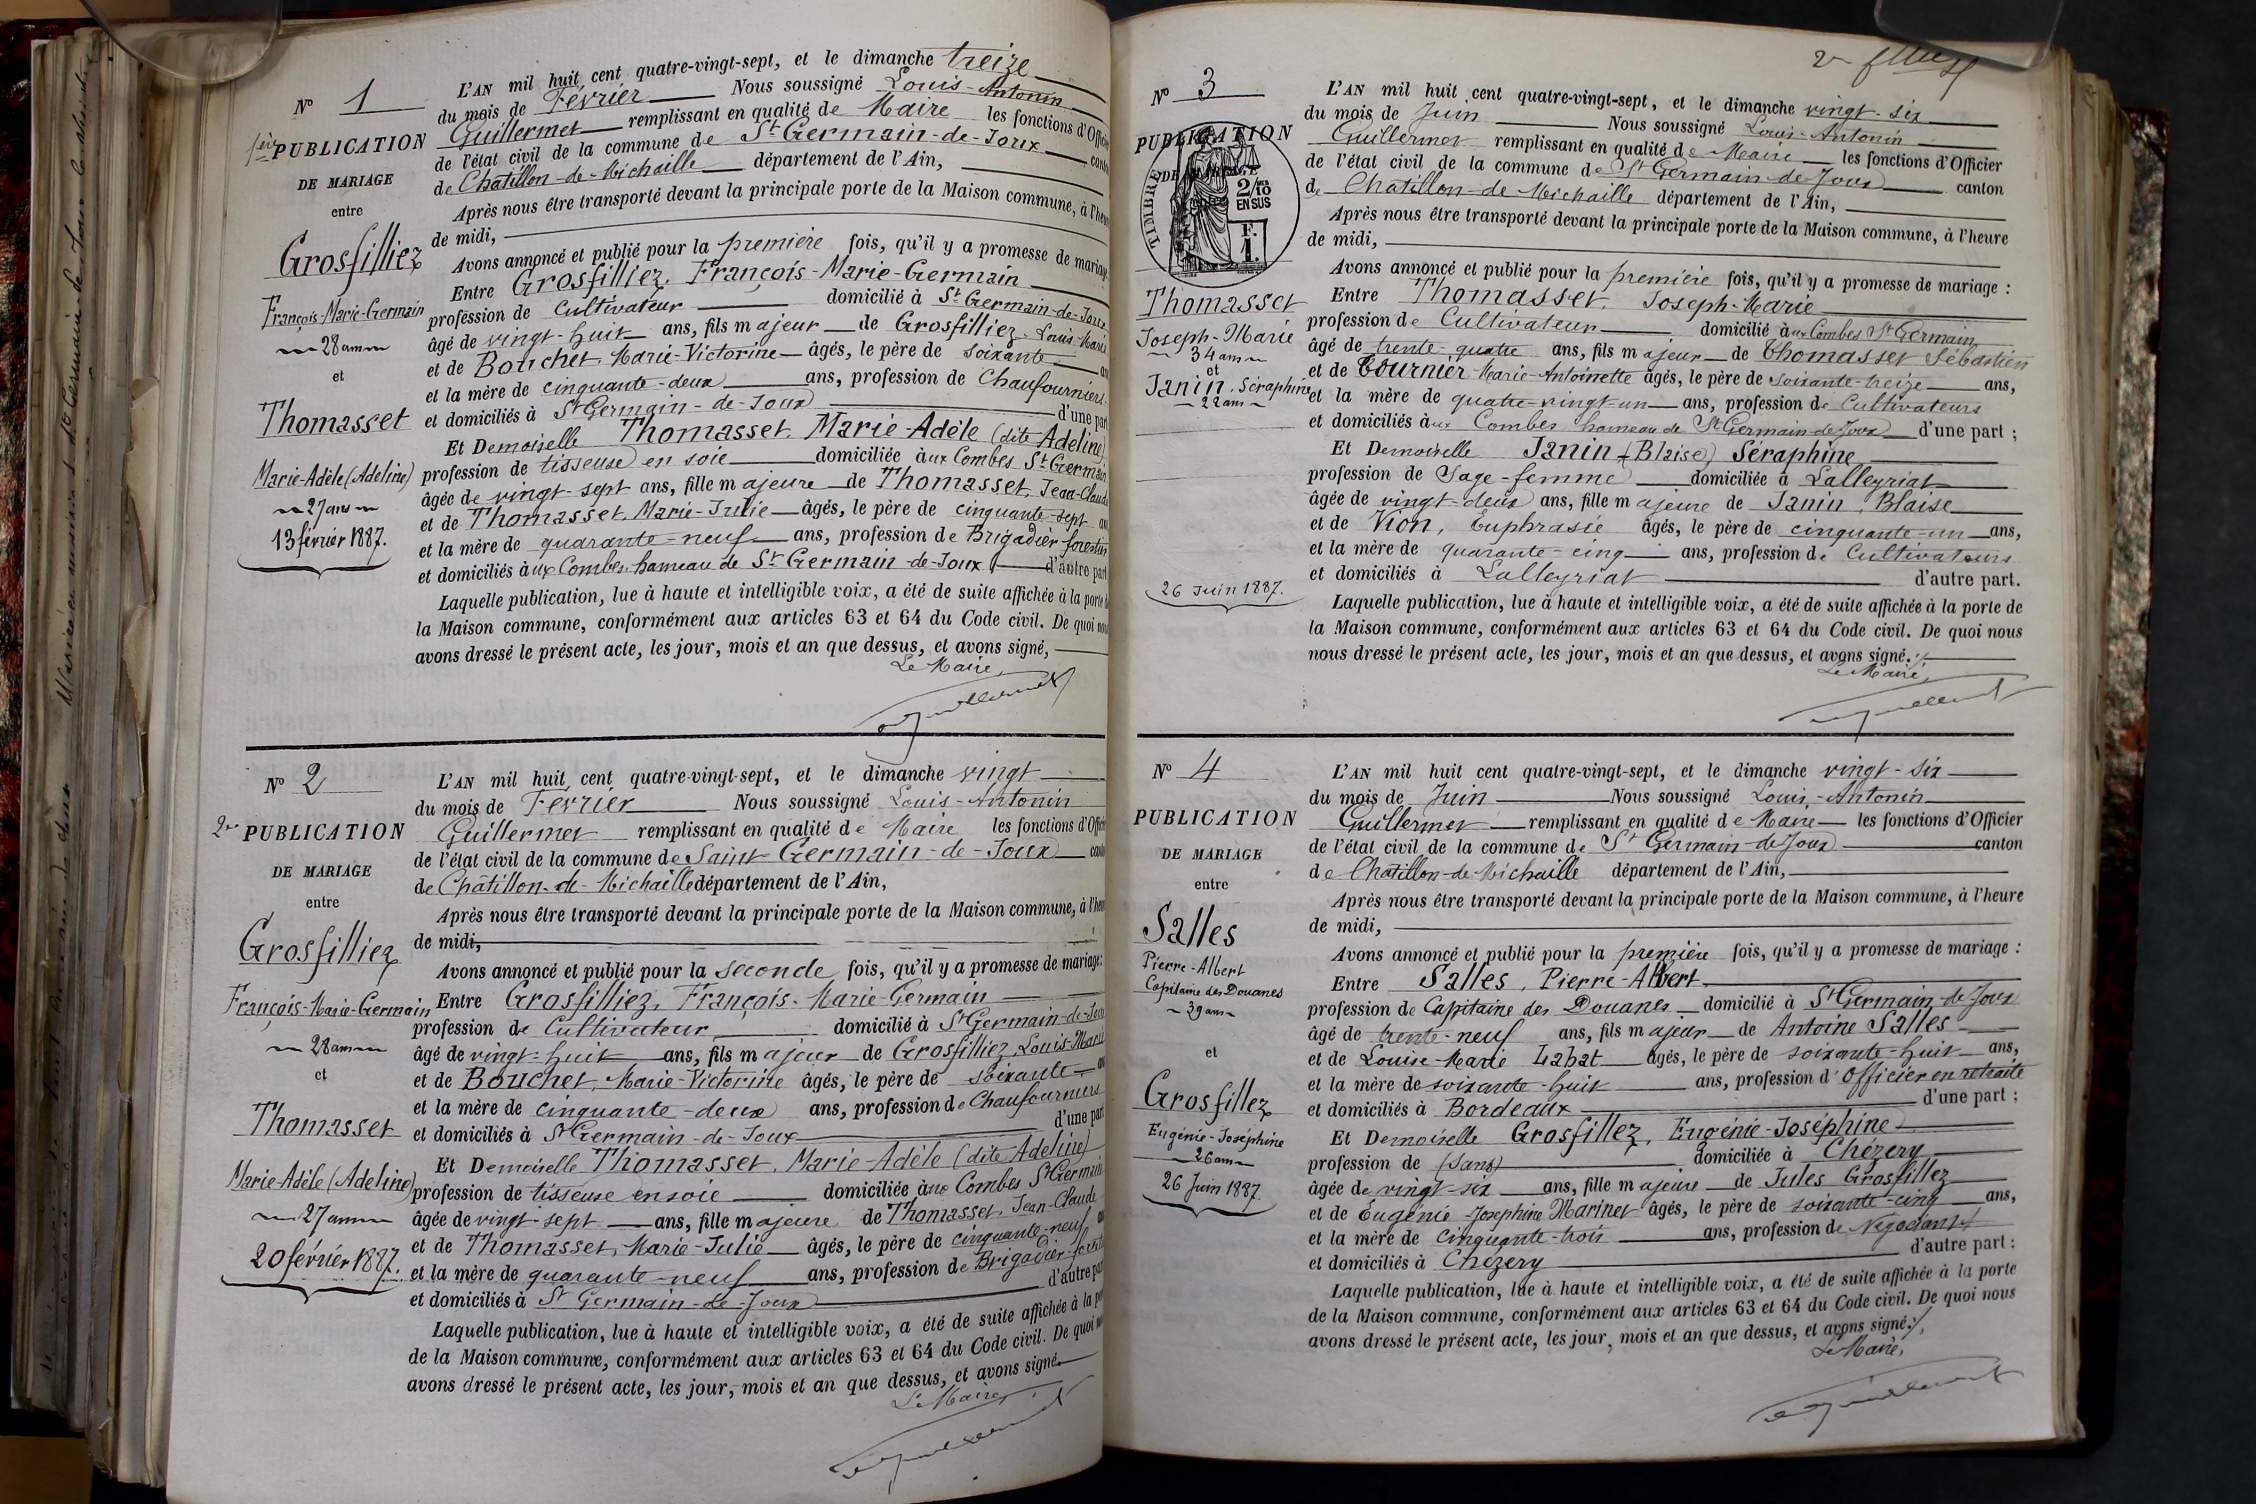 N° 1
1ère PUBLICATION
DE MARIAGE
entre
Grosfilliez
François-Marie-Germain
28 ans
et
Thomasset
Marie-Adèle (Adeline)
27 ans
13 février 1887.
L'AN mil huit cent quatre-vingt-sept, et le dimanche treize
du mois de Février Nous soussigné Louis-Antonin
Guillermet remplissant en qualité de Maire les fonctions d'Officier
de l'état civil de la commune de St Germain-de-Joux canton
de Châtillon-de-Michaille département de l'Ain,
Après nous être transporté devant la principale porte de la Maison commune, à l'heure
de midi,
Avons annoncé et publié pour la première fois, qu'il y a promesse de mariage
Entre Grosfilliez, François-Marie-Germain
profession de Cultivateur domicilié à St Germain-de-Joux
âgé de vingt-huit ans, fils majeur de Grosfilliez, Louis-Marie
et de Bouchet, Marie-Victorine âgés, le père de soixante ans
et la mère de cinquante-deux ans, profession de Chaufourniers
et domiciliés à St Germain-de-Joux d'une part
Et Demoiselle Thomasset, Marie-Adèle (dite Adeline)
profession de tisseuse en soie domiciliée aux Combes St Germain
âgée de vingt-sept ans, fille majeure de Thomasset, Jean-Claude
et de Thomasset, Marie-Julie âgés, le père de cinquante-sept ans
et la mère de quarante-neuf ans, profession de Brigadier forestier
et domiciliés aux Combes hameau de St Germain-de-Joux d'autre part
Laquelle publication, lue à haute et intelligible voix, a été de suite affichée à la porte de
la Maison commune, conformément aux articles 63 et 64 du Code civil. De quoi nous
avons dressé le présent acte, les jour, mois et an que dessus, et avons signé,
Le Maire,
Guillermet
N° 2
2e PUBLICATION
DE MARIAGE
entre
Grosfilliez
François-Marie-Germain
28 ans
et
Thomasset
Marie-Adèle (Adeline)
27 ans
20 février 1887.
L'AN mil huit cent quatre-vingt-sept, et le dimanche vingt
du mois de Février Nous soussigné Louis-Antonin
Guillermet remplissant en qualité de Maire les fonctions d'Officier
de l'état civil de la commune de Saint-Germain-de-Joux canton
de Châtillon-de-Michaille département de l'Ain,
Après nous être transporté devant la principale porte de la Maison commune, à l'heure
de midi,
Avons annoncé et publié pour la seconde fois, qu'il y a promesse de mariage :
Entre Grosfilliez, François-Marie-Germain
profession de Cultivateur domicilié à St Germain-de-Joux
âgé de vingt-huit ans, fils majeur de Grosfilliez, Louis-Marie
et de Bouchet, Marie-Victorine âgés, le père de soixante ans
et la mère de cinquante-deux ans, profession de Chaufourniers
et domiciliés à St Germain-de-Joux d'une part
Et Demoiselle Thomasset, Marie-Adèle (dite Adeline)
profession de tisseuse en soie domiciliée aux Combes St Germain
âgée de vingt-sept ans, fille majeure de Thomasset, Jean-Claude
et de Thomasset, Marie-Julie âgés, le père de cinquante-neuf ans
et la mère de quarante-neuf ans, profession de Brigadier-forestier
et domiciliés à St Germain-de-Joux d'autre part
Laquelle publication, lue à haute et intelligible voix, a été de suite affichée à la porte
de la Maison commune, conformément aux articles 63 et 64 du Code civil. De quoi nous
avons dressé le présent acte, les jour, mois et an que dessus, et avons signé.
Le Maire,
Guillermet
N° 3
PUBLICATION
DE MARIAGE
entre
TIMBRE
2/10
EN SUS
F.
1.
Thomasset
Joseph-Marie
34 ans
et
Janin, Séraphine
22 ans
26 Juin 1887.
L'AN mil huit cent quatre-vingt-sept, et le dimanche vingt-six
du mois de Juin Nous soussigné Louis-Antonin
Guillermet remplissant en qualité de Maire les fonctions d'Officier
de l'état civil de la commune de St Germain-de-Joux canton
de Châtillon-de-Michaille département de l'Ain,
Après nous être transporté devant la principale porte de la Maison commune, à l'heure
de midi,
Avons annoncé et publié pour la première fois, qu'il y a promesse de mariage :
Entre Thomasset, Joseph-Marie
profession de Cultivateur domicilié aux Combes St Germain
âgé de trente-quatre ans, fils majeur de Thomasset Sébastien
et de Tournier Marie-Antoinette âgés, le père de soixante-treize ans,
et la mère de quatre-vingt-un ans, profession de Cultivateurs
et domiciliés aux Combes hameau de St Germain-de-Joux d'une part ;
Et Demoiselle Janin (Blaise) Séraphine
profession de Sage-femme domiciliée à Lalleyriat
âgée de vingt-deux ans, fille majeure de Janin, Blaise
et de Vion, Euphrasie âgés, le père de cinquante-un ans,
et la mère de quarante-cinq ans, profession de Cultivateurs
et domiciliés à Lalleyriat d'autre part.
Laquelle publication, lue à haute et intelligible voix, a été de suite affichée à la porte de
la Maison commune, conformément aux articles 63 et 64 du Code civil. De quoi nous
nous dressé le présent acte, les jour, mois et an que dessus, et avons signé.
Le Maire,
Guillermet
N° 4
PUBLICATION
DE MARIAGE
entre
Salles
Pierre-Albert
Capitaine des Douanes
39 ans
et
Grosfillez
Eugénie-Joséphine
26 ans
26 Juin 1887
L'AN mil huit cent quatre-vingt-sept, et le dimanche vingt-six
du mois de Juin Nous soussigné Louis-Antonin
Guillermet remplissant en qualité de Maire les fonctions d'Officier
de l'état civil de la commune de St Germain-de-Joux canton
de Châtillon-de-Michaille département de l'Ain,
Après nous être transporté devant la principale porte de la Maison commune, à l'heure
de midi,
Avons annoncé et publié pour la première fois, qu'il y a promesse de mariage :
Entre Salles, Pierre-Albert
profession de Capitaine des Douanes domicilié à St Germain-de-Joux
âgé de trente-neuf ans, fils majeur de Antoine Salles
et de Louise-Marie Labat âgés, le père de soixante-huit ans,
et la mère de soixante-huit ans, profession d'Officier en retraite
et domiciliés à Bordeaux d'une part ;
Et Demoiselle Grosfillez, Eugénie-Joséphine
profession de (sans) domiciliée à Chézery
âgée de vingt-six ans, fille majeure de Jules Grosfillez
et de Eugénie-Josephine Marinet âgés, le père de soixante-cinq ans,
et la mère de cinquante-trois ans, profession de Négociants
et domiciliés à Chézery d'autre part :
Laquelle publication, lue à haute et intelligible voix, a été de suite affichée à la porte
de la Maison commune, conformément aux articles 63 et 64 du Code civil. De quoi nous
avons dressé le présent acte, les jour, mois et an que dessus, et avons signé.
Le Maire,
Guillermet